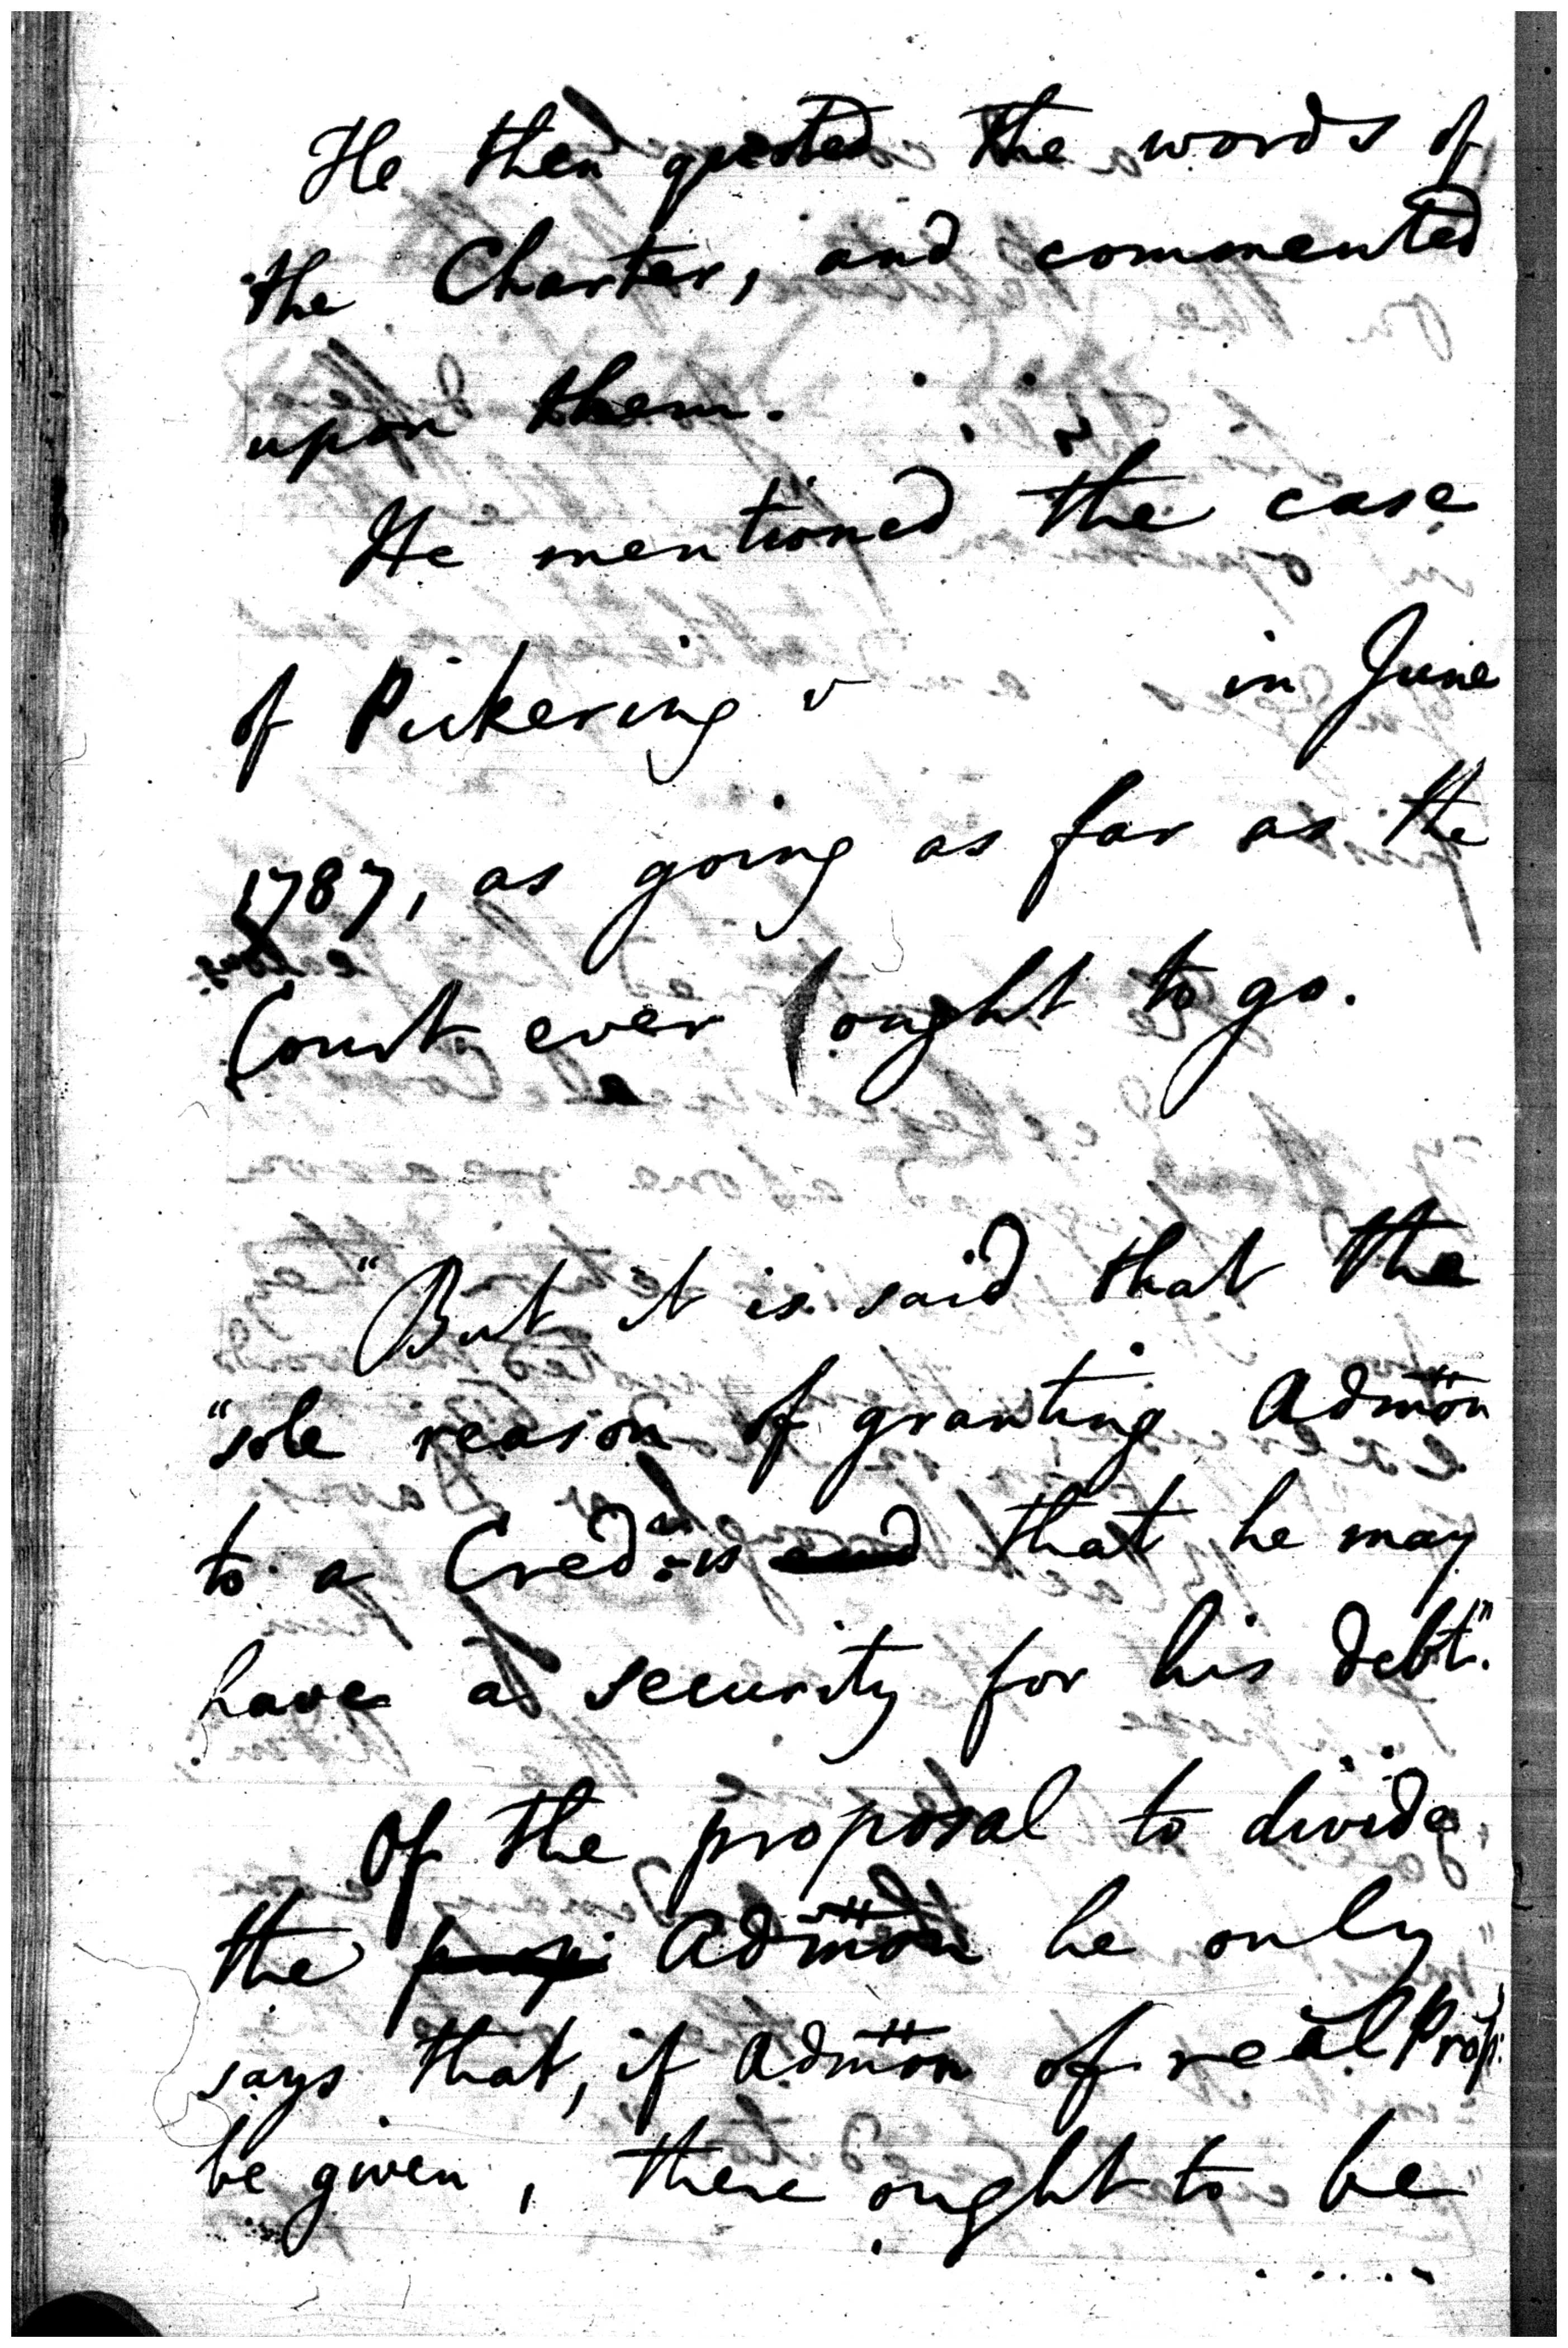 He then quoted the words of
the Charter, and commented
upon them.
He mentioned the case
of Pickering v in June
1787, as going as far as the
Court ever ought to go.
"But it is said that the
"sole reason of granting Admōn
to a Cred.r is that he may
have a security for his debt."
Of the proposal to divide
the Admōn he only
says that, if Admōn of real Prop.
be given, there ought to be